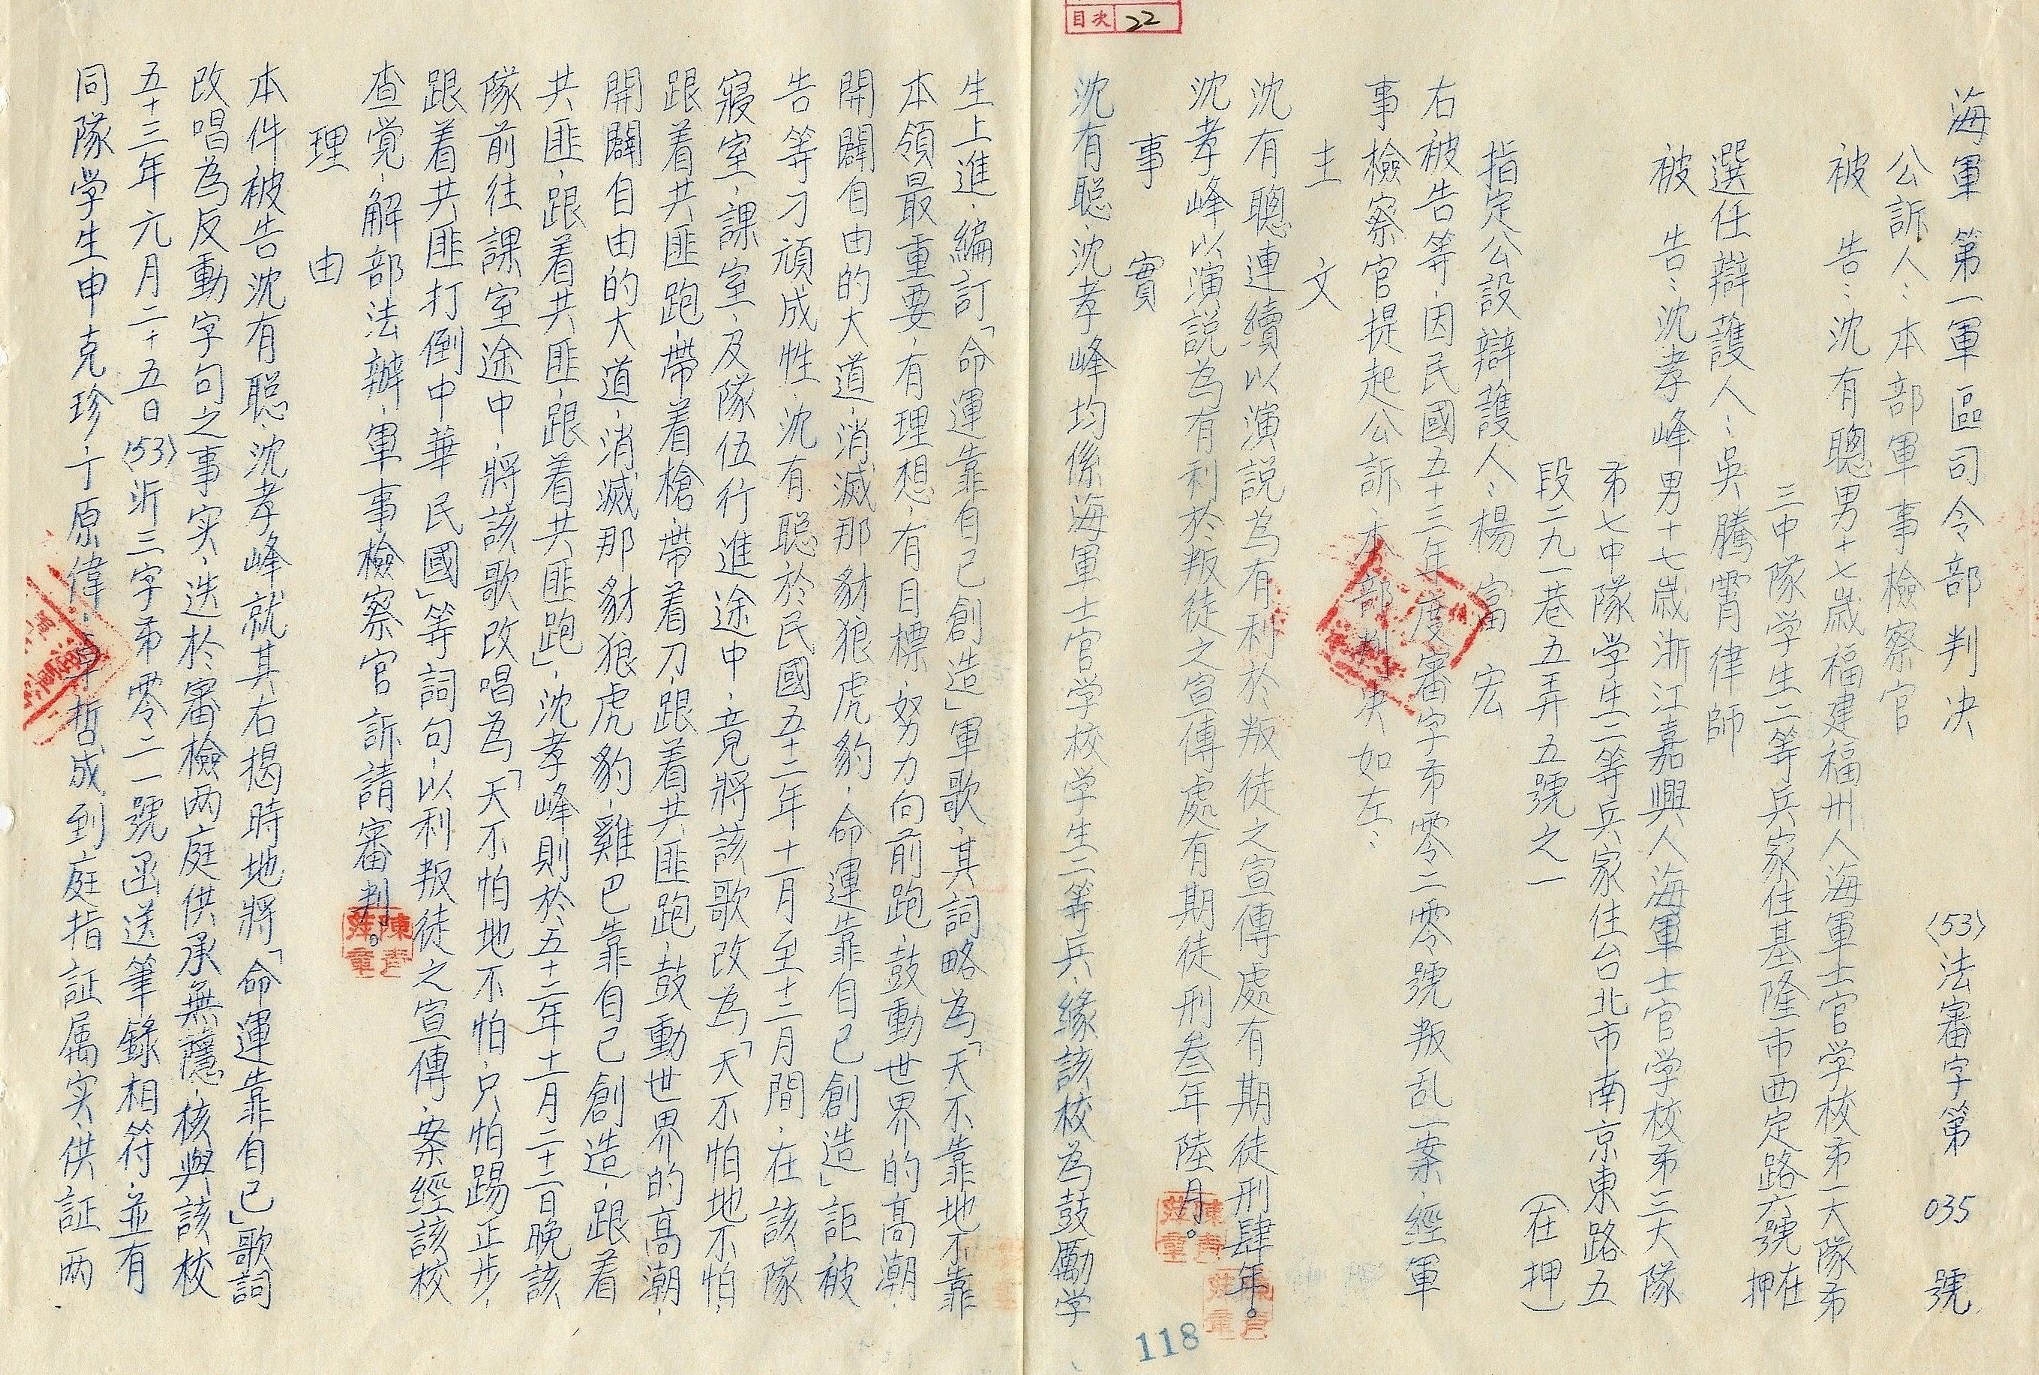 目次 22
海軍第一軍區司令部判決 (53)法審字第 035 號
公訴人：本部軍事檢察官
被 告：沈有聰男十七歲福建福州人海軍士官学校苐一大隊苐
三中隊学生二等兵家住基隆市西定路六號在押
選任辯護人：吳騰霄律師
被 告：沈孝峰男十七歲浙江嘉興人海軍士官学校苐三大隊
苐七中隊学生二等兵家住台北市南京東路五
段二九一巷五弄五號之一 (在押)
指定公設辯護人：楊富宏
右被告等，因民國五十三年度審字苐零二零號叛乱一案，經軍
事檢察官提起公訴，本部判决如左：
主 文
沈有聰連續以演説為有利於叛徒之宣傳處有期徒刑肆年。
沈孝峰以演説為有利於叛徒之宣傳處有期徒刑叁年陸月。
事 實
沈有聪、沈孝峰均係海軍士官学校学生二等兵，緣該校為鼓勵学
生上進，編訂「命運靠自己創造」軍歌，其詞略為「天不靠地不靠
本領最重要，有理想，有目標，努力向前跑，鼓動世界的高潮，
開闢自由的大道，消滅那豺狼虎豹，命運靠自己創造」詎被
告等刁頑成性，沈有聪於民國五十二年十一月至十二月間，在該隊
寢室，課室，及隊伍行進途中，竟將該歌改為「天不怕地不怕，
跟着共匪跑，帶着槍，帶着刀，跟着共匪跑，鼓動世界的高潮，
開闢自由的大道，消滅那豺狼虎豹，雞巴靠自己創造，跟着
共匪，跟着共匪，跟着共匪跑」，沈孝峰則於五十二年十二月二十二日晚該
隊前往課室途中，將該歌改唱為「天不怕地不怕，只怕踢正步，
跟着共匪打倒中華民國」等詞句，以利叛徒之宣傳，案經該校
查覚，解部法辦，軍事檢察官訴請審判。
理 由
本件被告沈有聪，沈孝峰就其右揭時地將「命運靠自己」歌詞
改唱為反動字句之事实，迭於審檢两庭供承無隱，核與該校
五十三年元月二十五日(53)沂三字苐零二一號函送筆錄相符，並有
同隊学生申克珍，丁原偉，哲成到庭指証属实，供証两
118